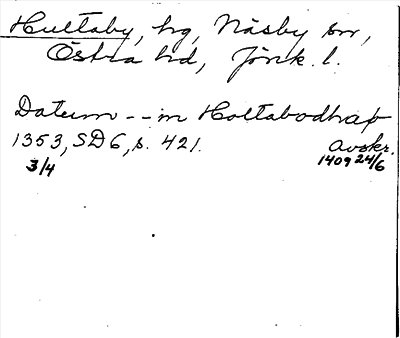 Hultaby, hg, Näsby sn,
Östra hd, Jönk. l.
Datum -- in Holtabodhæ
1353, SD6, s. 421. Avskr.
3/4 1409 24/6